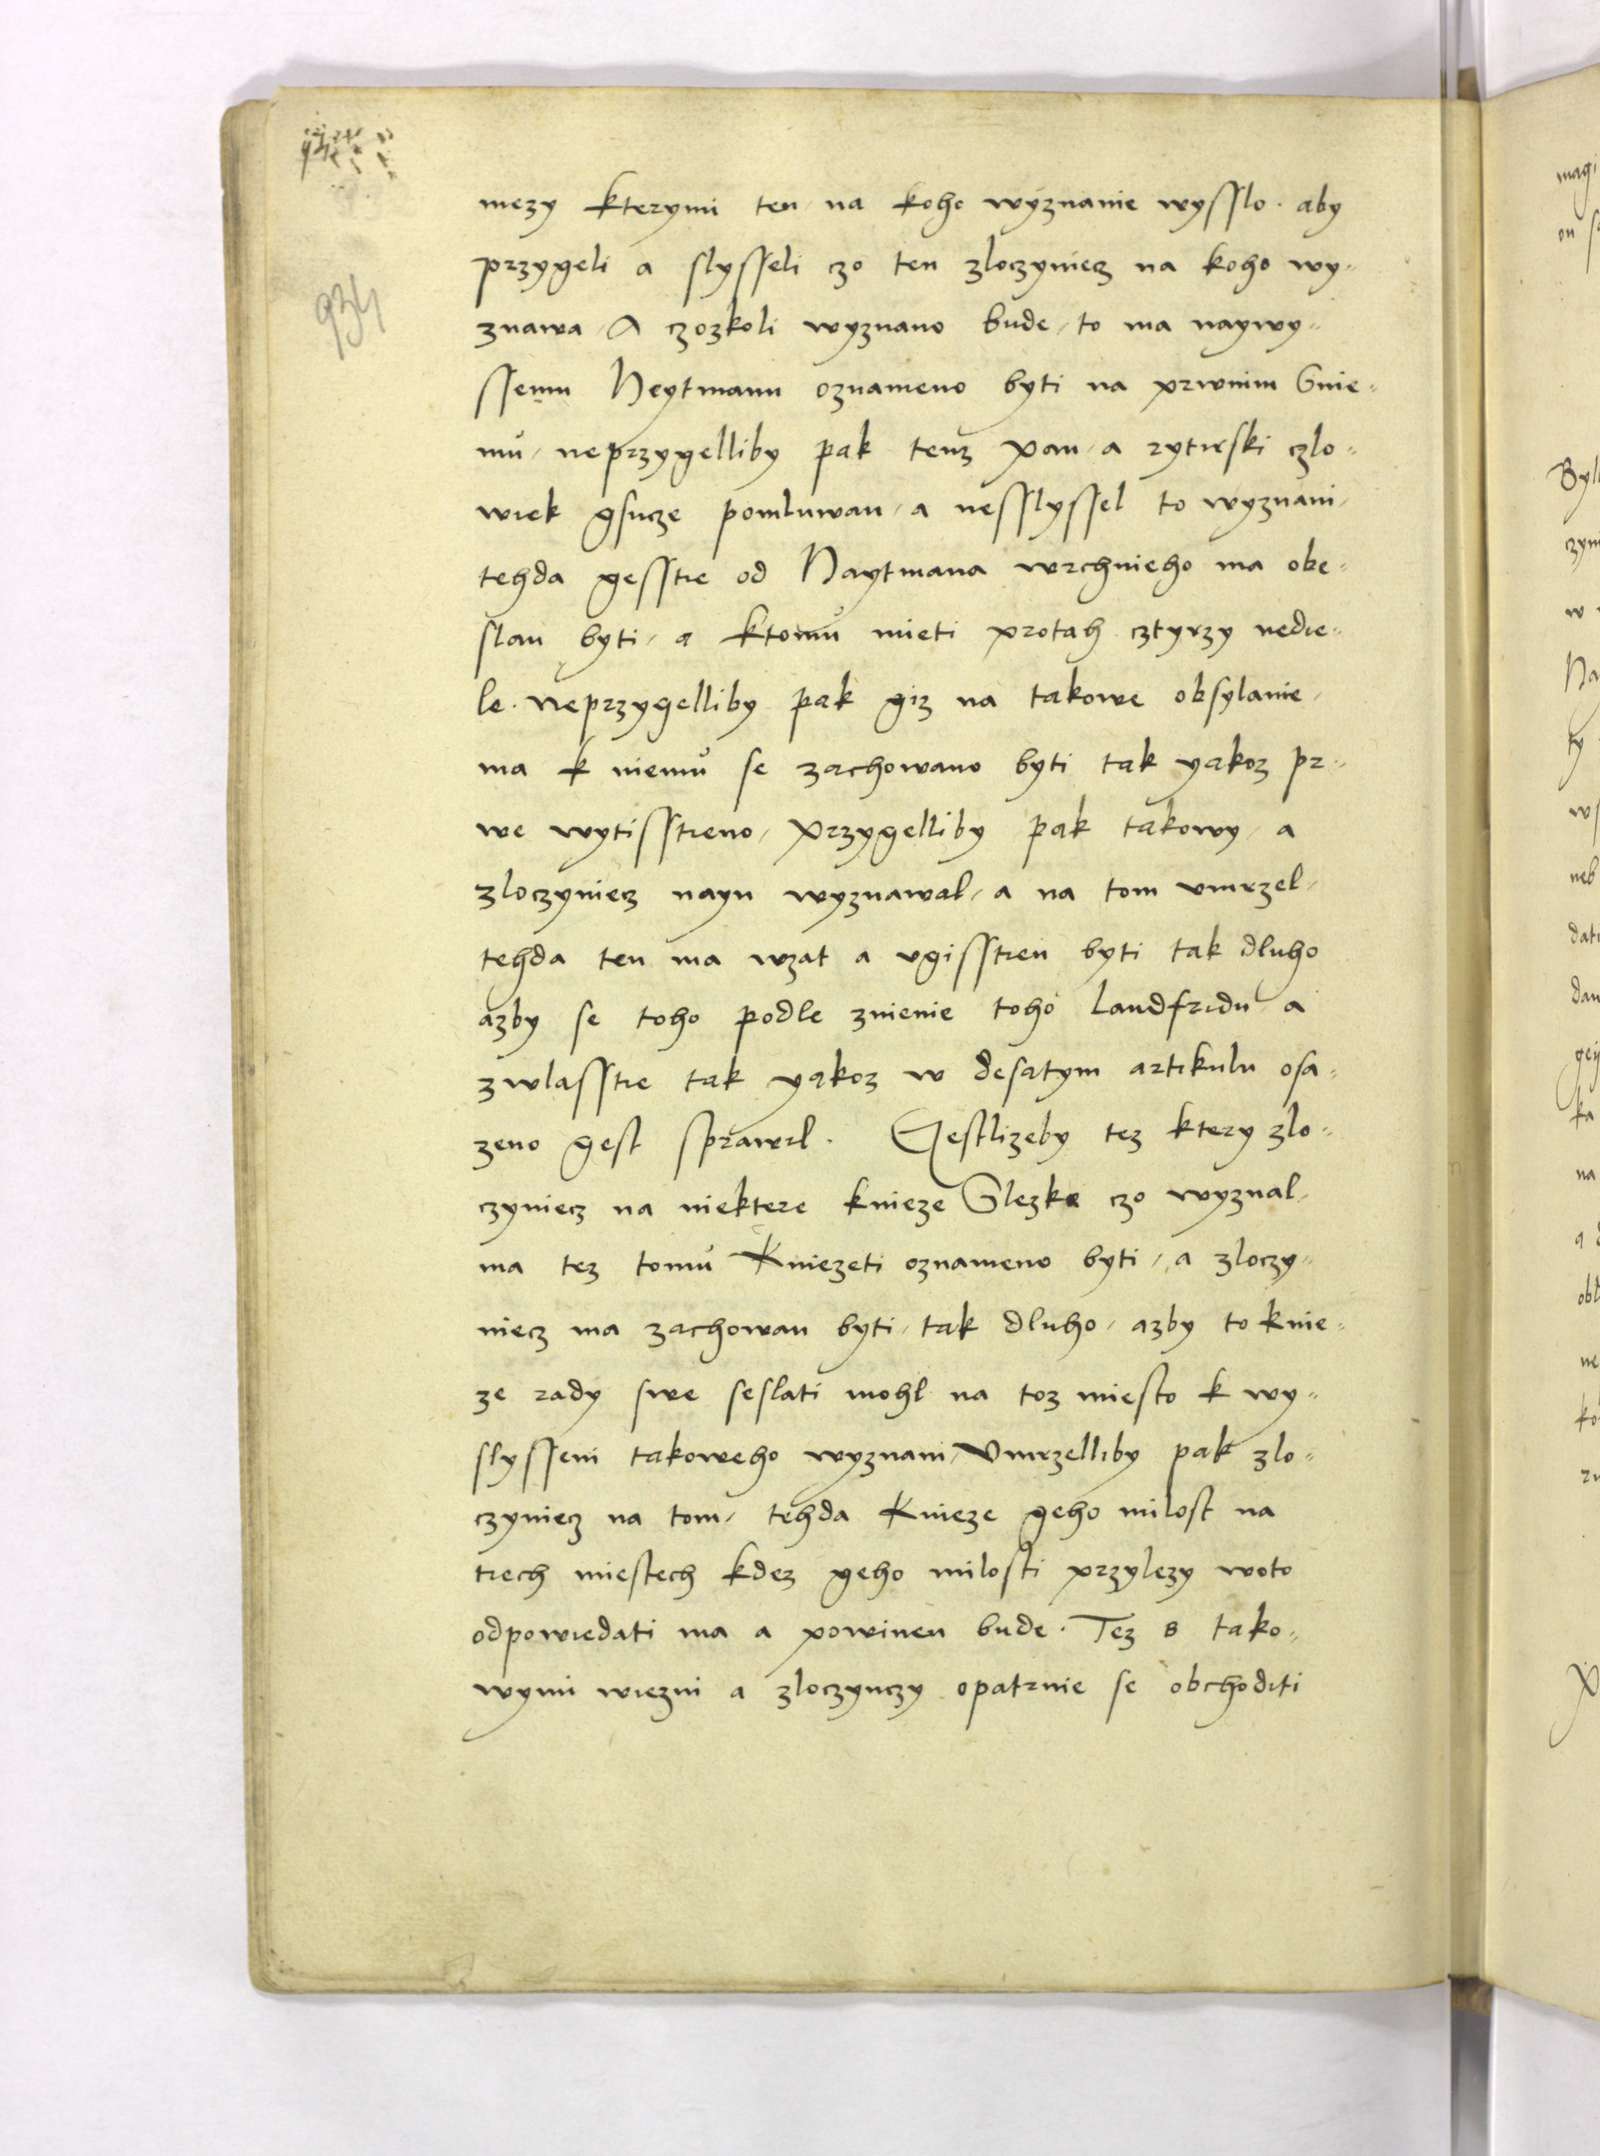 934
mezy kterymi ten na koho wyznanie wysslo. aby
przygeli a slysseli czo ten zloczyniecz na koho wy=
znawa / A czozkoli wyznano bude / to ma naywy=
ssemu Heytmanu oznameno byti na prwnim Snie=
mu / neprzygelliby pak tenz pan / a rytirski czlo=
wiek gsucze pomluwan / a nesslyssel to wyznani /
tehda gesstie od Haytmana wrchnieho ma obe=
slan byti / a ktomu mieti protah cztyrzy nedie=
le. Neprzygelliby pak giz na takowe obsylanie /
ma k niemu se zachowano byti tak yakoz pr=
we wytisstieno / Przygelliby pak takowy / a
zloczyniecz nayn wyznawal / a na tom vmrzel /
tehda ten ma wzat a vgisstien byti tak dluho
azby se toho podle znienie toho Landfridu a
zwlasstie tak yakoz w desatym artikulu osa=
zeno gest sprawil. Gestlizeby tez ktery zlo=
czyniecz na niektere knieze Slezke czo wyznal /
ma tez tomu Kniezeti oznameno byti / a zloczy=
niecz ma zachowan byti / tak dluho / azby to knie=
ze rady swe seslati mohl na toz miesto k wy=
slysseni takoweho wyznani / Vmrzelliby pak zlo=
czyniecz na tom / tehda Knieze geho milost na
tiech miestech kdez geho milosti przylezy woto
odpowiedati ma a powinen bude. Tez s tako=
wymi wiezni a zloczynczy opatrnie se obchoditi